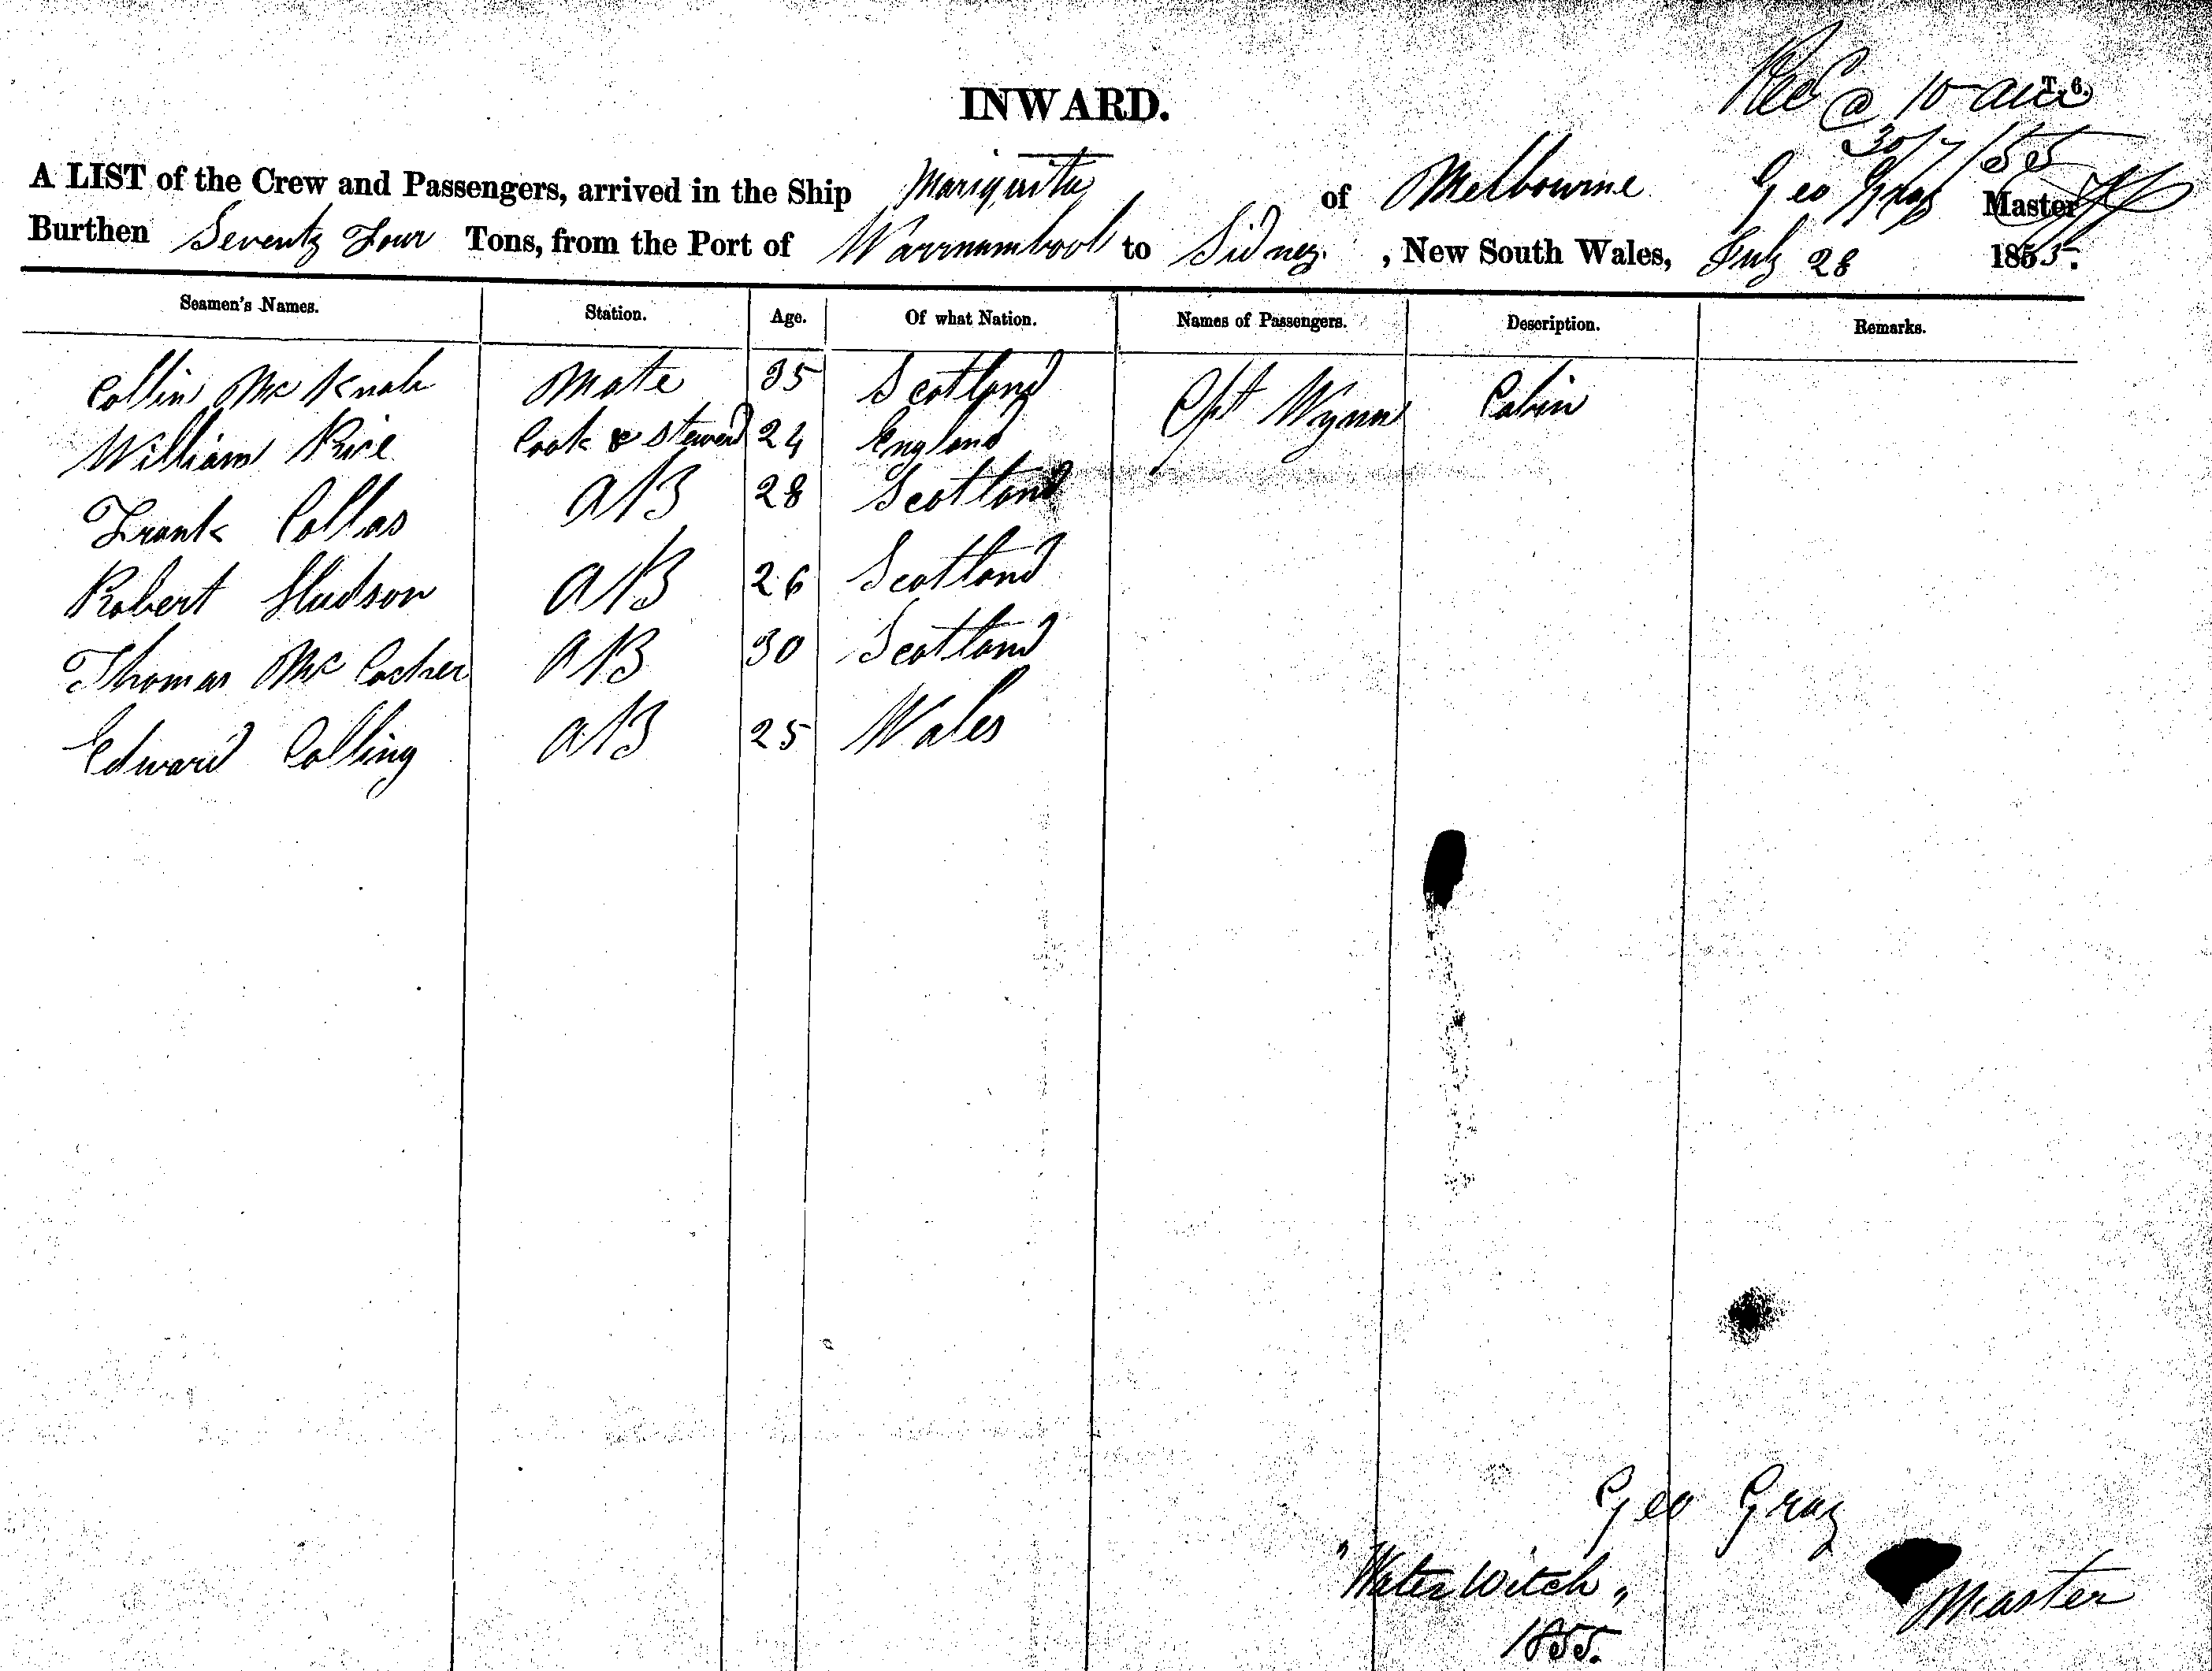 INWARD.
Recd @ 10 am T. 6.
30/7/55
A LIST of the Crew and Passengers, arrived in the Ship Mariquita of Melbourne Geo Gray Master
Burthen Seventy Four Tons, from the Port of Warrnambool to Sidney. , New South Wales, July 28 1855.
Seamen's Names. Station. Age. Of what Nation. Names of Passengers. Description. Remarks.
Collin Mc Knab Mate 35 Scotland Cpt Wynn Cabin
William Rice Cook & Steward 24 England
Frank Collas AB 28 Scotland
Robert Hudson AB 26 Scotland
Thomas Mc Cocher AB 30 Scotland
Edward Colling AB 25 Wales
Geo Gray
"Water Witch"
Master
1855.